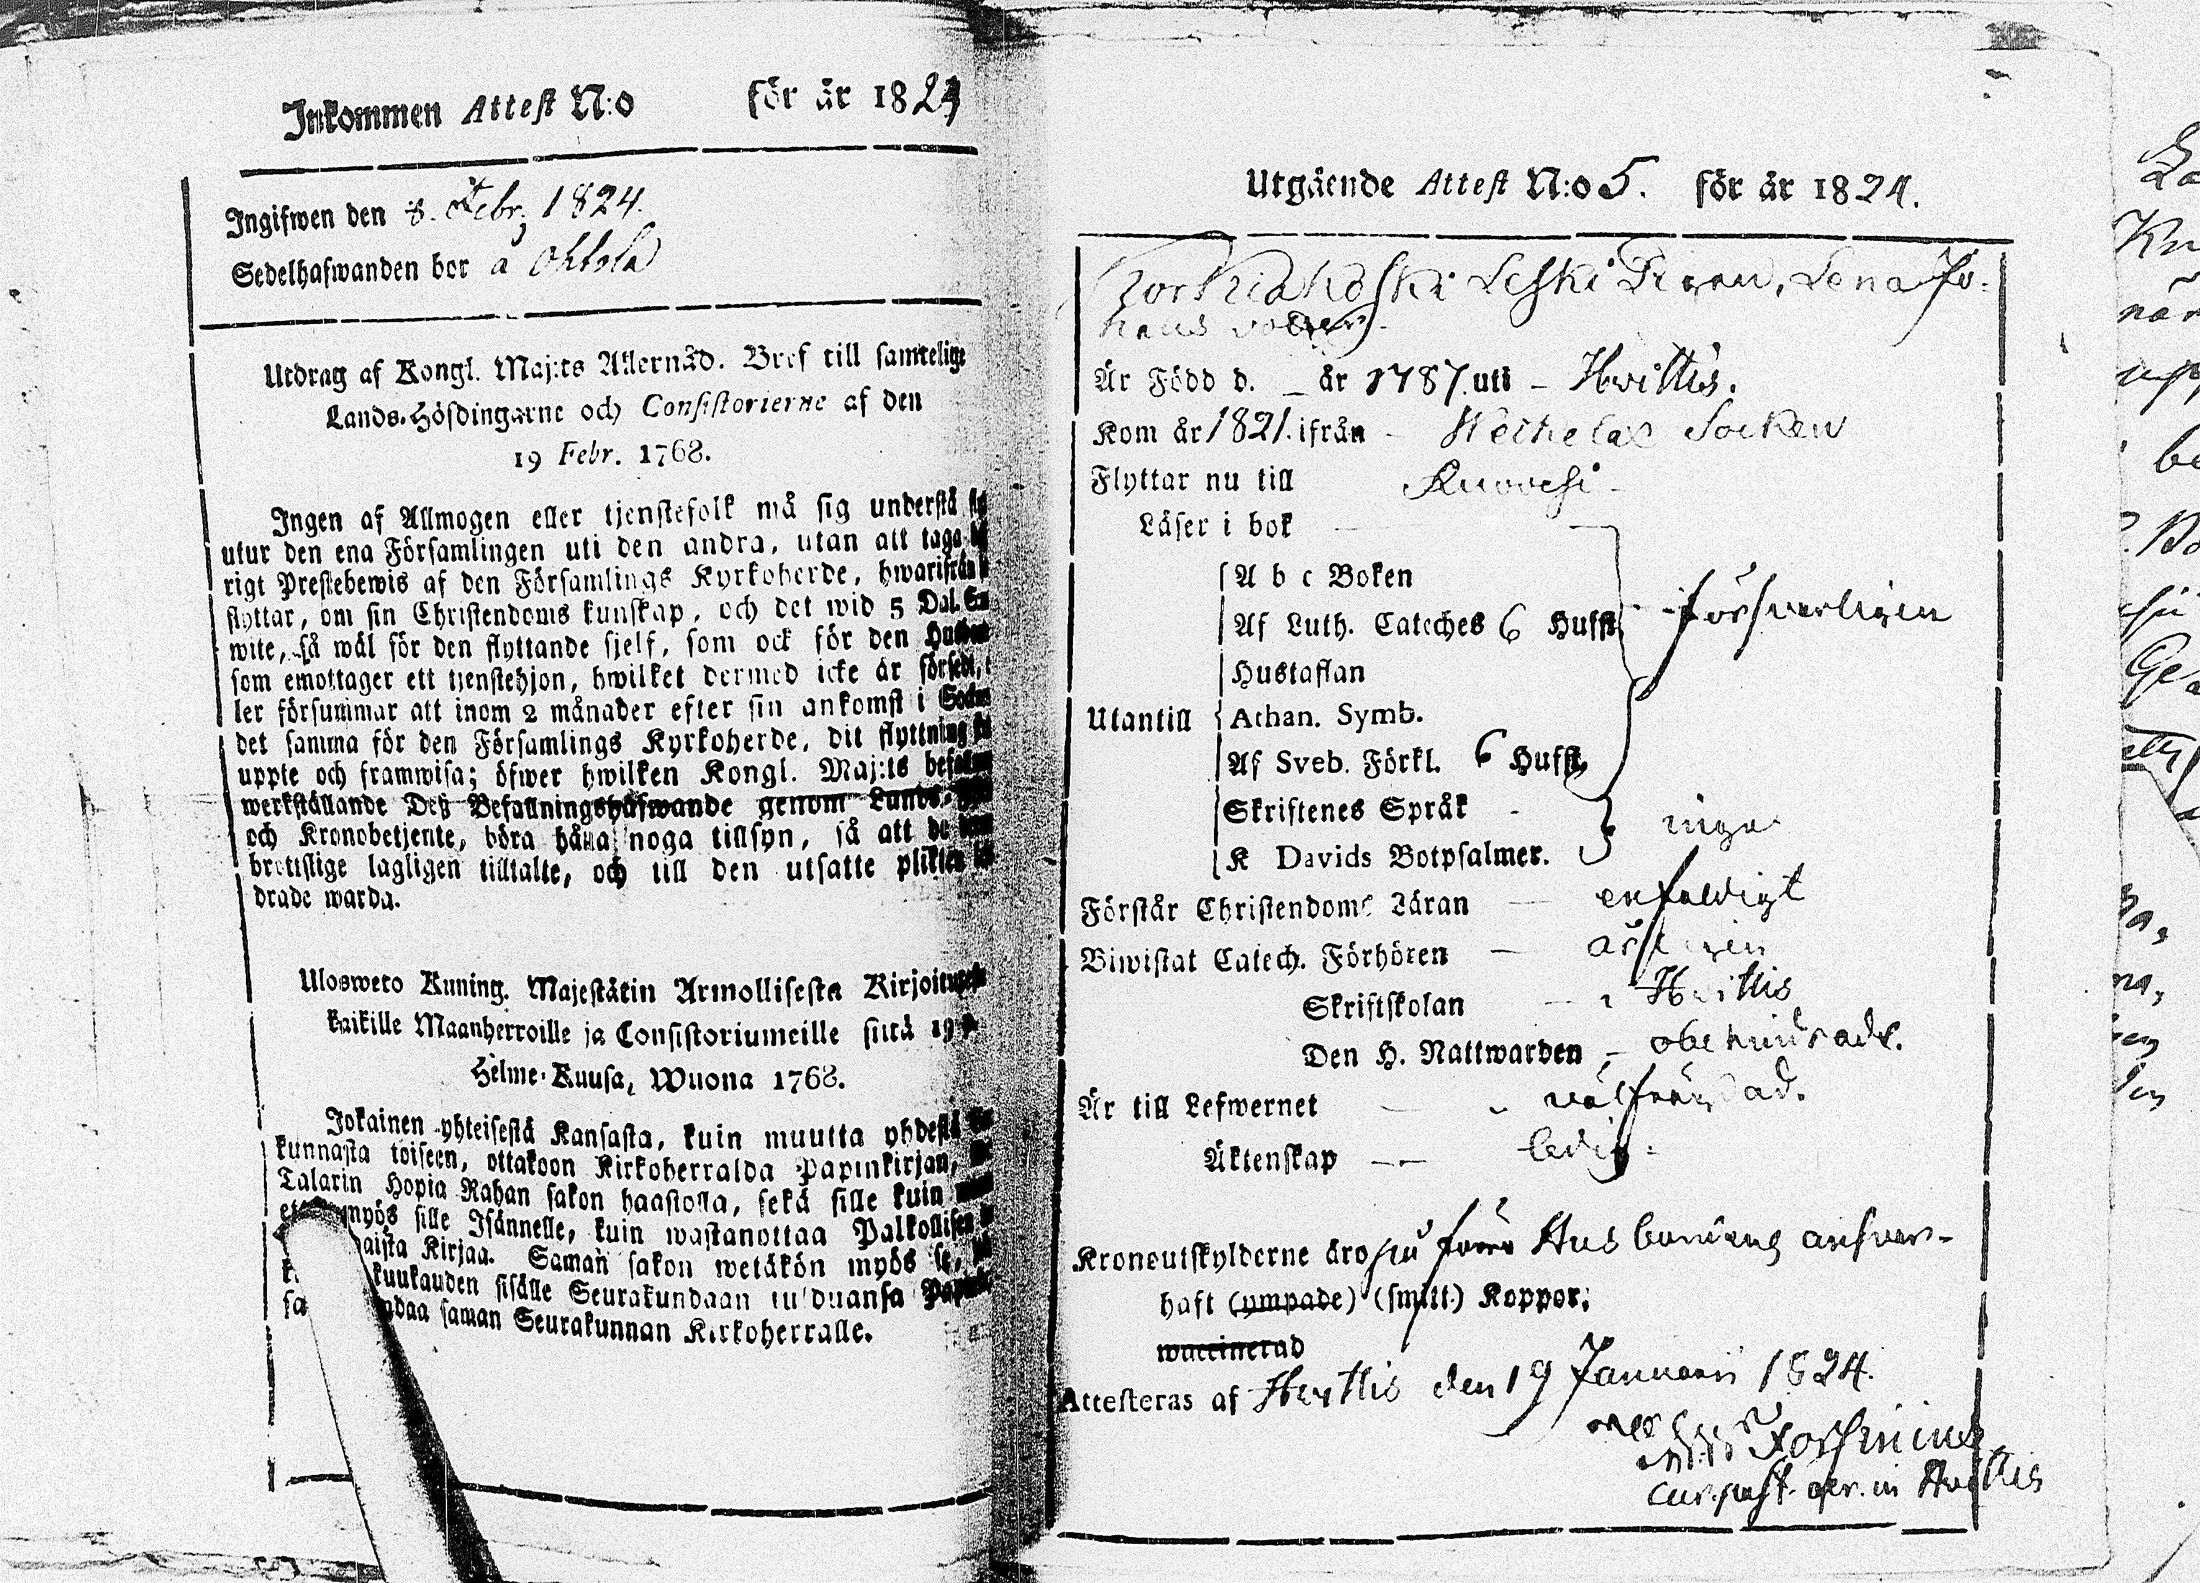 Inkommen Attest N:o för är 1824
Ingifwen den 8. Febr. 1824.
Sedelhafwanden bor å Ohtola
Utdrag af Kongl. Maj:ts Allernåd. Bref till samtelige
Lands-Höfdingarne och Consistorierne af den
19 Febr. 1768.
Ingen af Allmogen eller tjenstefolk må sig understå
utur den ena Församlingen uti den andra, utan att taga
rigt Prestebewis af den Församlings Kyrkoherde, hwarifrån
flyttar, om sin Christendoms kunskap, och det wid 5 Dal.
wite, så wäl för den flyttande sjelf, som ock för den
som emottager ett tjenstehjon, hwilket dermed icke är försedt,
ler försummar att inom 2 månader efter sin ankomst i
det samma för den Församlings Kyrkoherde, dit flyttning
uppte och framwisa; öfwer hwilken Kongl. Maj:ts
werkställande Deß Befallningshafwande genom Lands-
och Kronobetjente, böra hålla noga tillsyn, så att de
brottslige lagligen tilltalte, och till den utsatte plikten
drade warda.
Ulosweto Kuning. Majestätin Armollisesta Kirjoituxesta
kaikille Maanherroille ja Consistoriumeille siitä 19
Helme-Kuusa, Wuona 1768.
Jokainen yhteisestä Kansasta, kuin muutta yhdestä
kunnasta toiseen, ottakoon Kirkoherralda Papinkirjan,
Talarin Hopia Rahan sakon haastolla, sekä sille kuin
myös sille Isännelle, kuin wastanottaa Palkollisen
aista Kirjaa. Saman sakon wetäkön myös se,
kuukauden sisälle Seurakundaan tulduansa
ndaa saman Seurakunnan Kirkoherralle.
Utgående Attest N:o 5. för är 1824.
Leski Pigan, Lena Jo-
hans dotter
Är Född d. _ är 1787. uti - Hwittis.
Kom år 1821. ifrån - Socken
Flyttar nu till Ruovesi
Läser i bok
A b c Boken
Af Luth. Cateches 6 Hufst. försvarligen
Hustaflan
Utantill Athan. Symb.
Af Sveb. Förkl. 6 Hufst.
Skriftenes Språk
K Davids Botpsalmer. inga
Förstår Christendoms Läran enfaldigt
Biwistat Catech. Förhören årligen
Skriftskolan i Hwittis
Den H. Nattwarden obehindrad.
Är till Lefwernet välfrägdad.
Äktenskap ledig.
Kronoutskylderne äro på förra Husbondens answar-
haft (ympade) (smitt.) Koppor.
waccinerad
Attesteras af Hwittis den 19 Januarii 1824.
Forsenius
cur. past. ger. in Hwittis